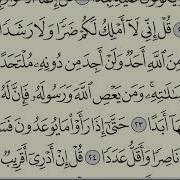 قُلْ إِنِّى لَآ أَمْلِكُ لَكُمْ ضَرًّا وَلَا رَشَدًا
مِنَ ٱللَّهِ أَحَدٌ وَلَنْ أَجِدَ مِن دُونِهِۦ مُلْتَحَدًا
لَـٰتِهِۦ ۚ وَمَن يَعْصِ ٱللَّهَ وَرَسُولَهُۥ فَإِنَّ لَهُۥ
هَآ أَبَدًا ٢٣ حَتَّىٰٓ إِذَا رَأَوْا۟ مَا يُوعَدُونَ فَسَ
نَاصِرًا وَأَقَلُّ عَدَدًا ٢٤ قُلْ إِنْ أَدْرِىٓ أَقَرِيبٌ